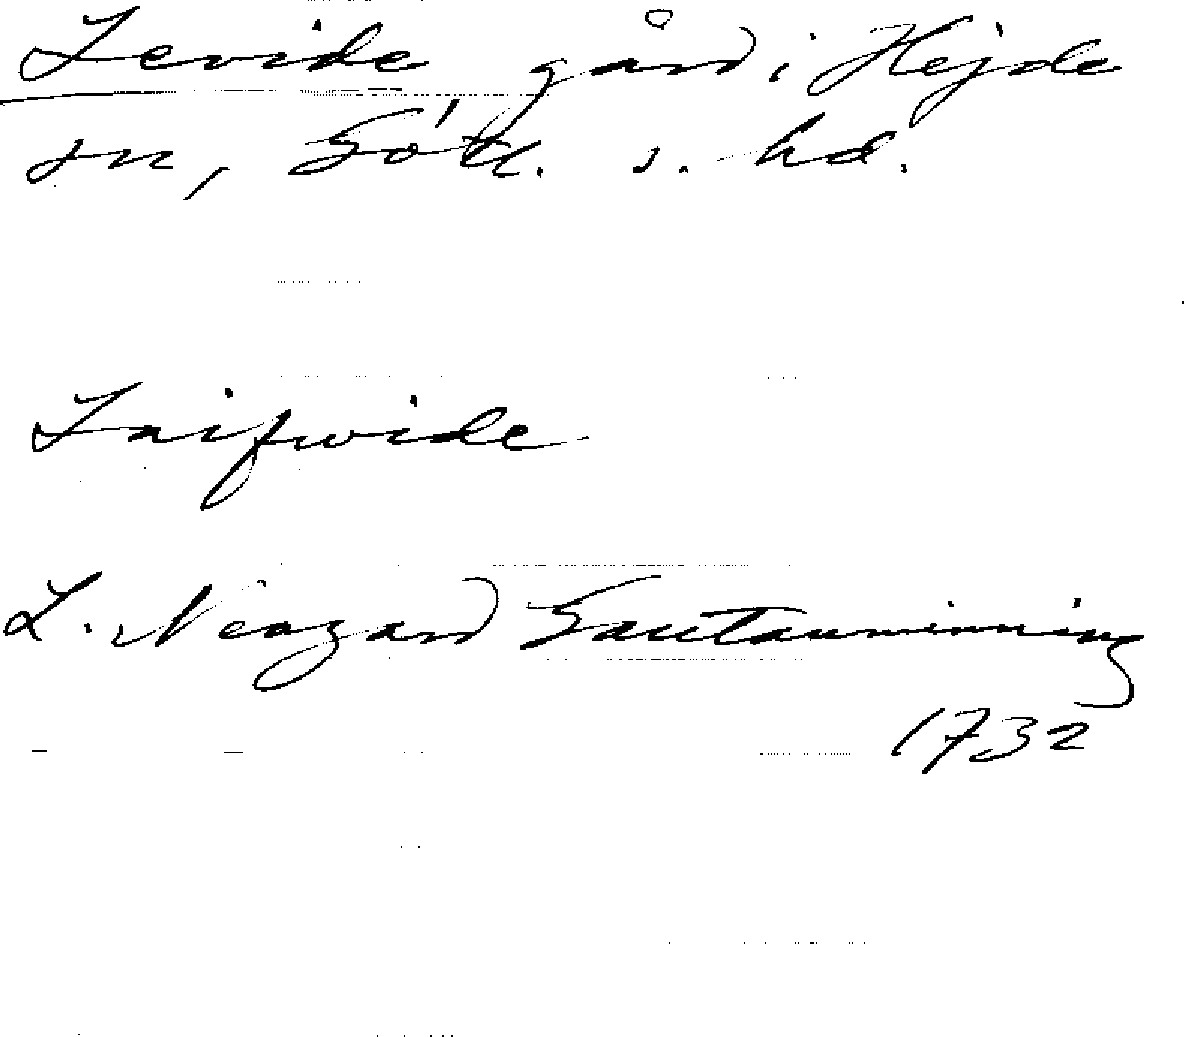 Levide gård i Hejde
sn, Götl. s. hd.
Laifwide
L. Neogard Gautauminning
1732